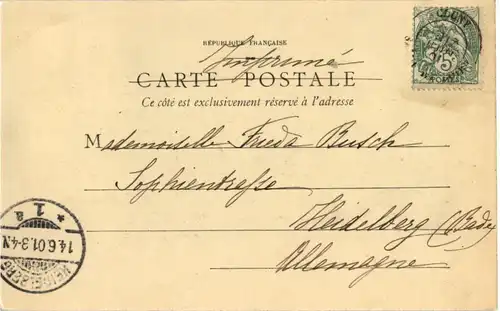 RÉPUBLIQUE FRANÇAISE
Imprimé
CARTE POSTALE
Ce côté est exclusivement réservé à l'adresse
Mademoiselle Frieda Busch
Sophienstrasse
Heidelberg (Bade)
Allemagne
CLUNY
5
HEIDELBERG
14.6.01.3-4N
* 1 a